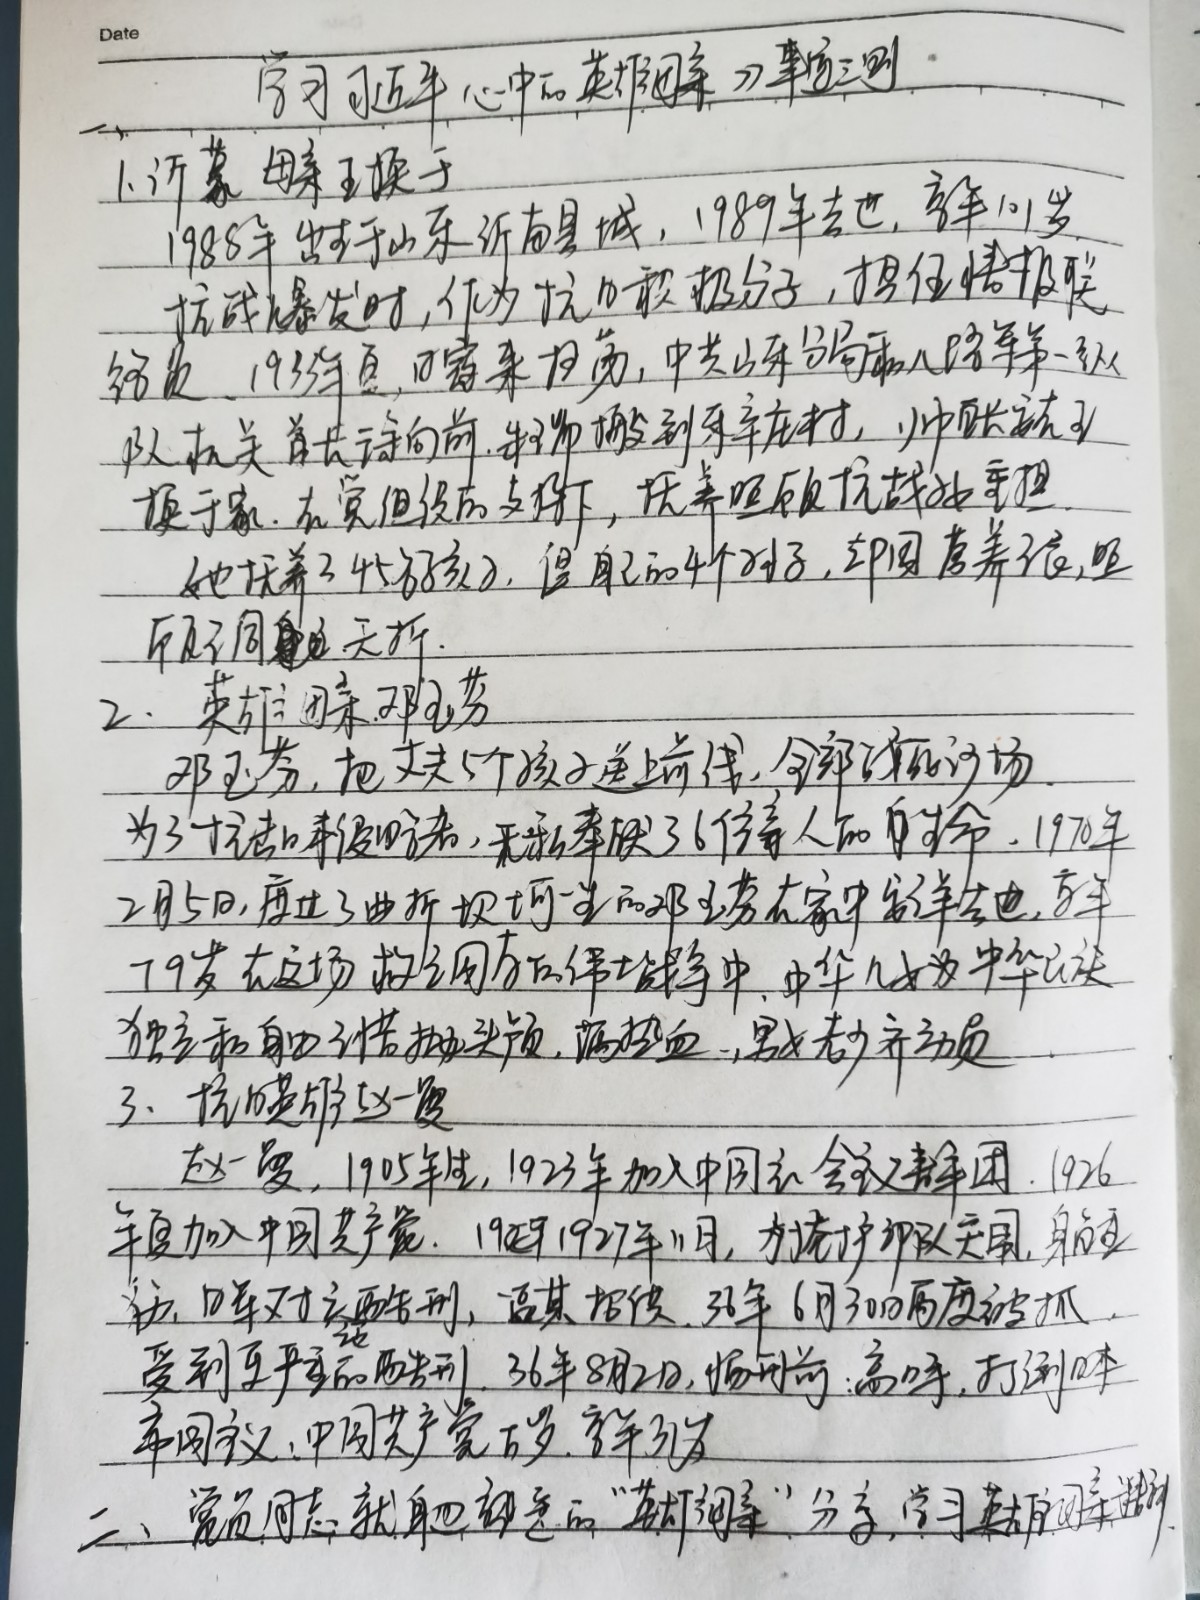 Date
学习习近平心中的英雄母亲》事迹三则
一、
1、沂蒙母亲王换于
1988年出生于山东沂南县城，1989年去世，享年101岁
抗战爆发时，作为抗日积极分子，担任情报联
络员、1935年夏，日寇来扫荡，中共山东分局和八路军第一纵
队机关首长徐向前、朱瑞搬到东辛庄村，
换于家．在党组织的支持下，抚养照顾抗战的重担．
她抚养了45名孩子，但自己的4个孙子，却因营养不良，照
顾不周 夭折．
2、英雄母亲邓玉芬
邓玉芬，把丈夫5个孩子送上前线，全部战死沙场．
为了抗击日本侵略者，无私奉献了6位亲人的生命．1970年
2月5日，度过了曲折坎坷一生的邓玉芬在家中安详去世，享年
79岁在这场救亡图存的伟大战争中，中华儿女为中华民族
独立和自由不惜抛头颅，洒热血，男女老少齐动员
3、抗日英雄赵一曼
赵一曼，1905年生，1923年加入中国社会主义青年团．1926
年夏加入中国共产党．1927年11月，为掩护部队突围，身负重
伤，日军对 酷刑，逼其招供．36年6月30日再度被抓，
受到更严重的酷刑．36年8月2日，临刑前：高呼，打倒日本
帝国主义，中国共产党万岁．享年31岁
二、党员同志就身边熟悉的“英雄母亲”分享，学习英雄母亲精神